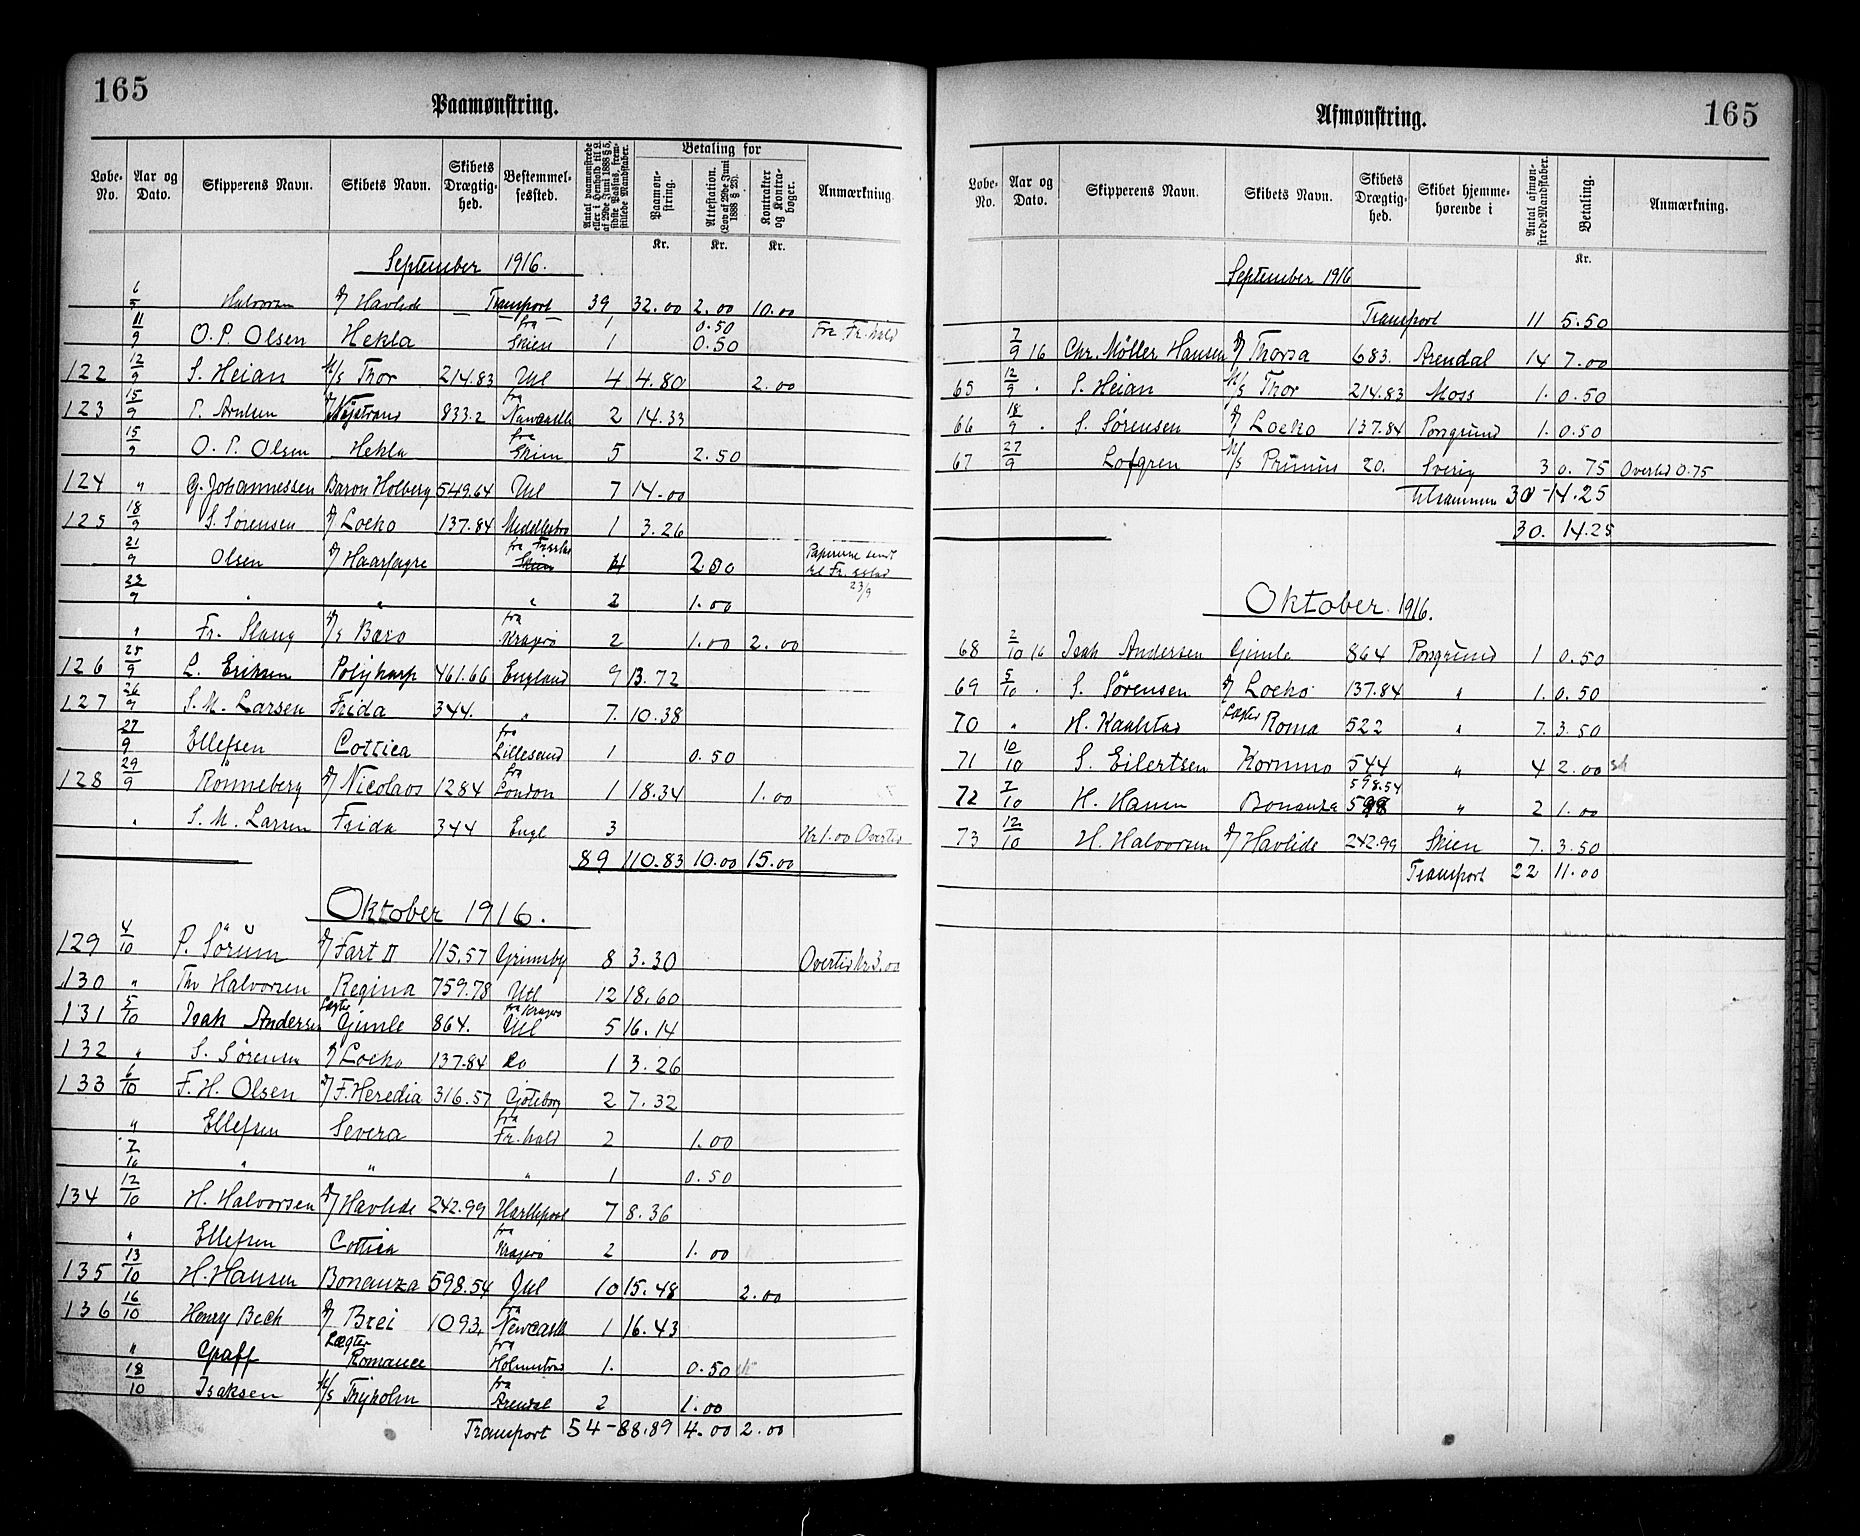 165
Paamønstring.
Løbe-No. | Aar og Dato. | Skipperens Navn. | Skibets Navn. | Skibets Drægtighed. | Bestemmelsessted. | Antal paamønstrede eller i Henhold til L. af 29de Juni 1888 § 5, sidste Passus, fremstillede Mandskaber. | Betaling for | Paamønstring. | Attestation. (Lov af 29de Juni 1888 § 23). | Kontrakter og Kontrabøger. | Anmærkning.
Kr. | Kr. | Kr.
September 1916.
Halvorsen | Havlide | Transport | 39 | 32.00 | 2.00 | 10.00
11/9 | O. P. Olsen | Hekla | fra Skien | 1 | 0.50 | Fra Fr.hald
1 | 0.50
122 | 12/9 | S. Heian | M/S Thor | 214.83 | Utl | 4 | 4.80 | 2.00
123 | 15/9 | 833.2 | fra Newcastle | 2 | 14.33
15/9 | O. P. Olsen | Hekla | fra Skien | 5 | 2.50
124 | " | G. Johannessen | Baron Holberg | 549.64 | Utl | 7 | 14.00
125 | 18/9 | S. Sørensen | Loeko | 137.84 | Middelsbro | 1 | 3.26
21/9 | Olsen | Haarfagre | fra Skien | 4 | 2.00 | Papirerne sendt til Fr. 23/9
23/9 | " | " | " | 2 | 1.00
" | Fr. Slang | Baro | fra Kragerø | 2 | 1.00 | 2.00
126 | 25/9 | L. Eriksen | Polykarp | 461.66 | England | 9 | 13.72
127 | 26/9 | S. M. Larsen | Frida | 344. | " | 7. | 10.38
27/9 | Ellefsen | Cottica | fra Lillesand | 1 | 0.50
128 | 29/9 | Rønneberg | Nicolaos | 1284 | fra London | 1 | 18.34 | 1.00
" | S. M. Larsen | Frida | 344 | Engl | 3 | Kr 1.00 Overtid
89 | 110.83 | 10.00 | 15.00
Oktober 1916.
129 | 4/10 | P. Sørum | Fart II | 115.57 | Grimsby | 8 | 3.30 | Overtid Kr. 3.00
130 | " | Thv Halvorsen | Regina | 759.78 | Utl | 12 | 18.60
131 | 5/10 | Isak Andersen | Lægter Gimle | 864. | fra Kragerø Utl | 5 | 16.14
132 | " | S. Sørensen | Loeko | 137.84 | do | 1 | 3.26
133 | 6/10 | F. H. Olsen | F. Heredia | 316.57 | Gøteborg | 2 | 7.32
" | Ellefsen | Severa | fra Fr.hald | 2 | 1.00
7/10 | " | " | " | 1 | 0.50
134 | 12/10 | H. Halvorsen | Havlide | 242.99 | Hartlepool | 7 | 8.36
" | Ellefsen | Cottica | fra Kragerø | 2 | 1.00
135 | 13/10 | H. Hansen | Bonanza | 598.54 | Utl | 10 | 15.48 | 2.00
136 | 16/10 | Henry Bech | Brei | 1093, | fra Newcastle | 1 | 16.43
" | Graff | Lægter Romance | fra Holmestrand | 1. | 0.50
18/10 | Isaksen | M/S Thyholm | fra Arendal | 2 | 1.00
Transport | 54 - | 88.89 | 4.00 | 2.00
165
Afmønstring.
Løbe-No. | Aar og Dato. | Skipperens Navn. | Skibets Navn. | Skibets Drægtighed. | Skibet hjemmehørende i | Antal afmønstrede Mandskaber. | Betaling. | Anmærkning.
Kr.
September 1916
Transport | 11 | 5.50
7/9 16 | Chr. Møller Hansen | Thorsa | 683. | Arendal | 14 | 7.00
65 | 12/9 | S. Heian | M/S Thor | 214.83 | Moss | 1. | 0.50
66 | 18/9 | S. Sørensen | Loeko | 137.84 | Porsgrund | 1. | 0.50
67 | 27/9 | Lofgren | M/S Primus | 20. | Sverig | 3 | 0.75 | Overtid 0.75
Tilsammen | 30 - | 14.25
30. | 14.25
Oktober 1916.
68 | 2/10 16 | Isak Andersen | Gimle | 864 | Porsgrund | 1 | 0.50
69 | 5/10 | S. Sørensen | Loeko | 137.84 | " | 1. | 0.50
70 | " | H. Kaalstad | Lægter Roma | 522 | " | 7. | 3.50
71 | 10/10 | S. Eilertsen | Kornmo | 544 | " | 4 | 2.00
72 | 7/10 | H. Hansen | Bonanza | 598.54 598 | " | 2 | 1.00
73 | 12/10 | H. Halvorsen | Havlide | 242.99 | Skien | 7. | 3.50
Transport | 22 | 11.00